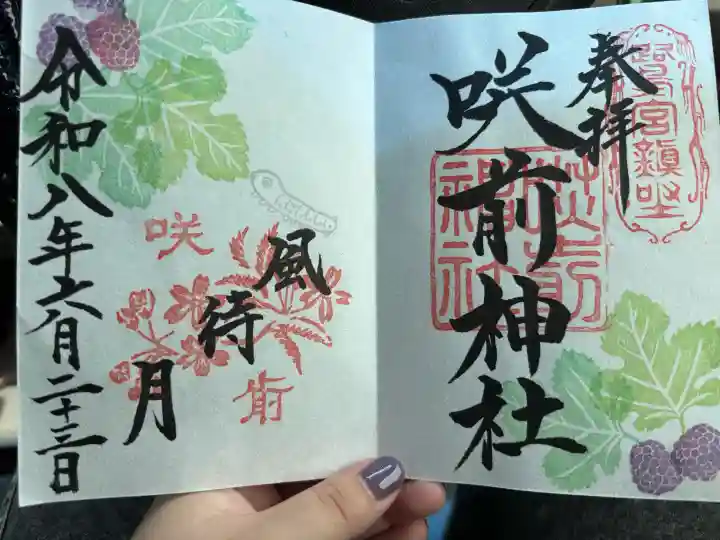 奉拝
鷺宮鎮坐
咲前神社
咲前神社
風待月
咲前
令和八年六月二十三日